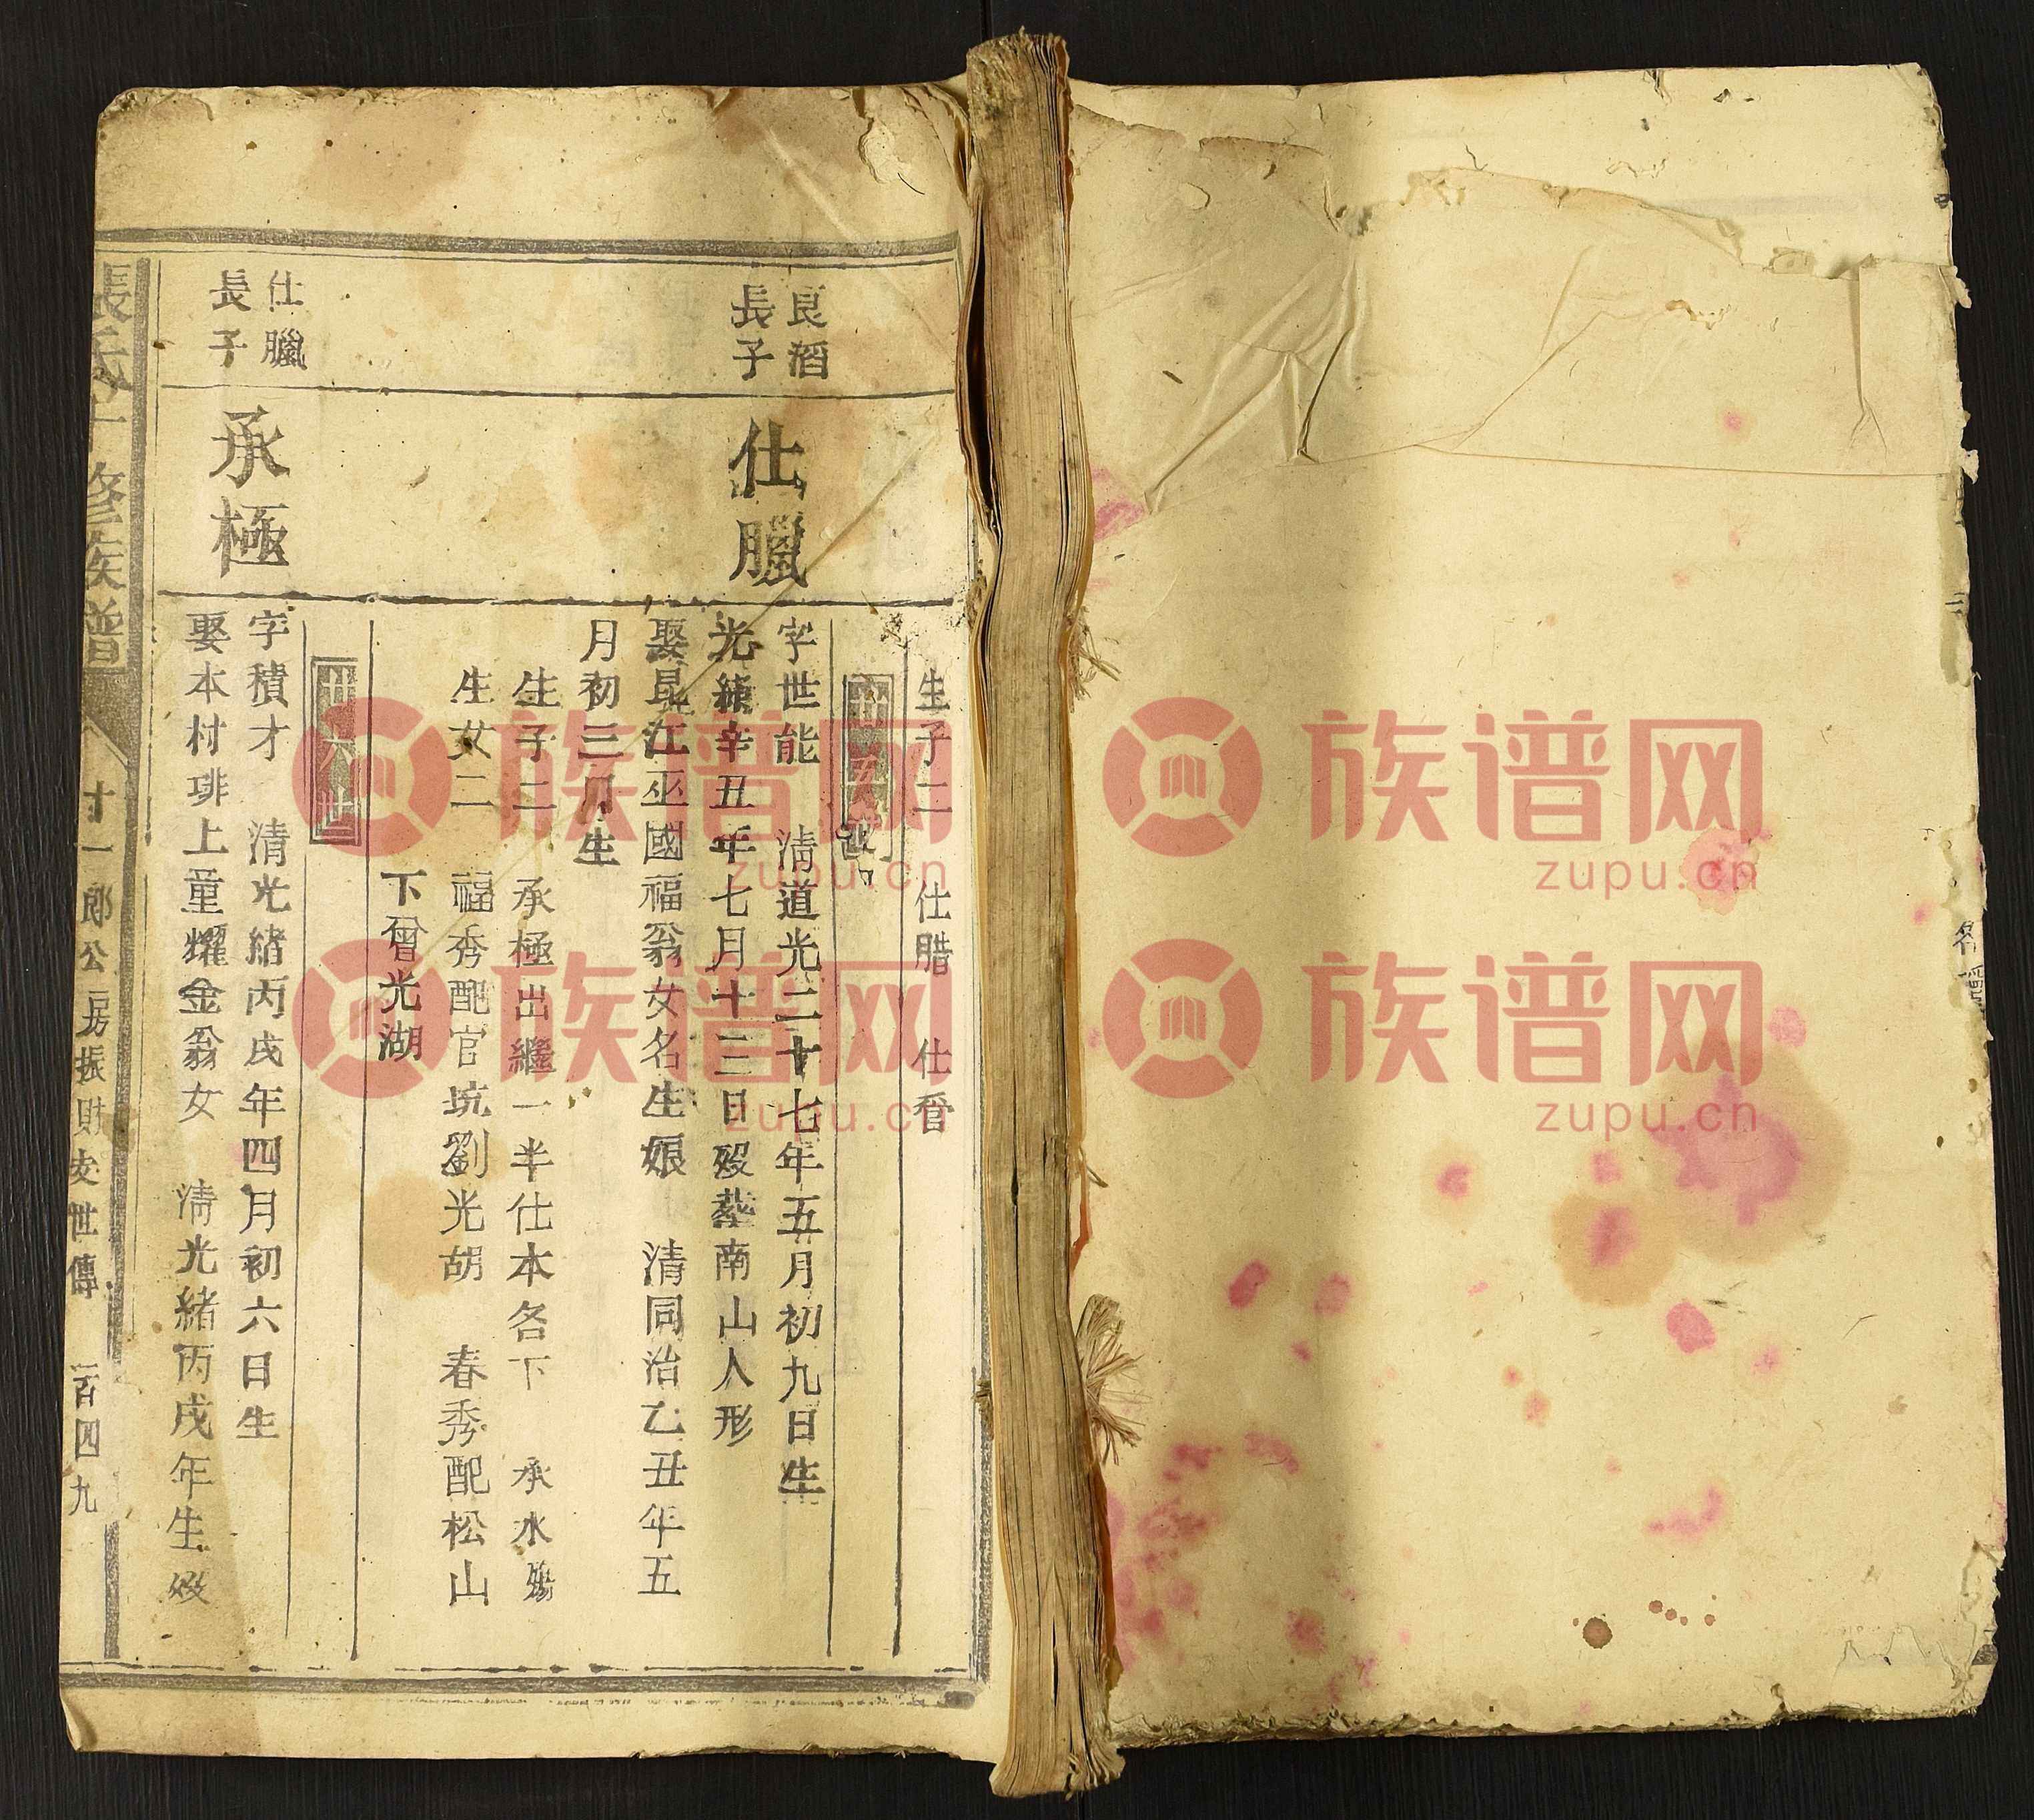 生子二 仕腊 仕㫺
良滔
長子
仕臘
字世能 清道光二十七年五月初九日生
光緒辛丑年七月十三日歿塟南山人形
娶昆江巫國福翁女名生娘 清同治乙丑年五
月初三日生
生子二 承極出繼一半仕本名下 承水殤
生女二 福秀配官坑劉光胡 春秀配松山
下曾光湖
卅六世
仕臘
長子
承極
字積才 清光緒丙戌年四月初六日生
娶本村琲上童耀金翁女 清光緒丙戌年生歿
張氏十修族譜
十一郎公房振財支世傳 一百四九
族谱网 zupu.cn
族谱网 zupu.cn
族谱网 zupu.cn
族谱网 zupu.cn